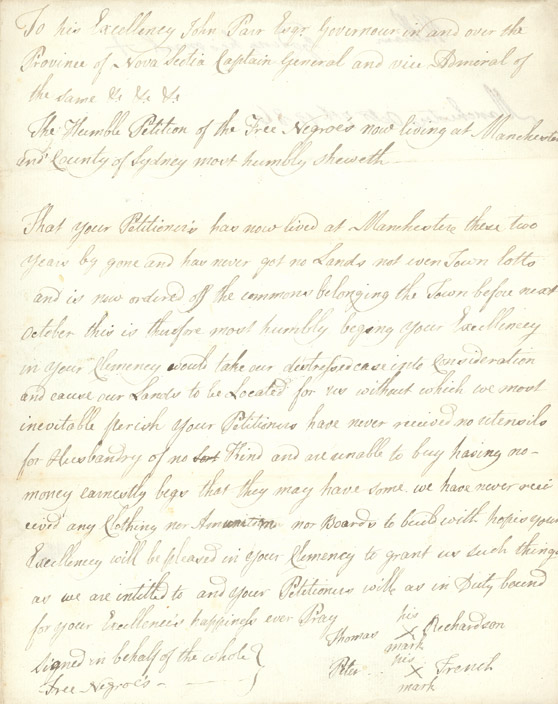 To his Excellency John Parr Esqr Governour in and over the
Province of Nova Scotia Captain General and vice Admoral of
the same &c &c &c
The Humble Petition of the Free Negroes now living at Manchester
and County of Sydney most humbly sheweth
That your Petitioners has now lived at Manchester these two
years by gone and has never got no Lands not even Town lotts
and is now ordered off the commons belonging the Town before next
October this is therefore most humbly beging your Excellency
in your Clemency would take our distressed case into Consideration
and cause our Lands to be Located for us without which we most
inevitable perish your Petitioners have never received no utensils
for Husbandry of no sort Kind and are unable to buy having no
money earnestly begs that they may have some we have never recei
eived any Clothing nor Amunition nor Boards to build with hopes your
Excellency will be pleased in your Clemency to grant us such things
as we are intitled to and your Petitioners will as in Duty bound
for your Excellencies happiness ever Pray
his
Thomas X Richardson
mark
Signed in behalf of the whole
Free Negroes
his
Peter X French
mark